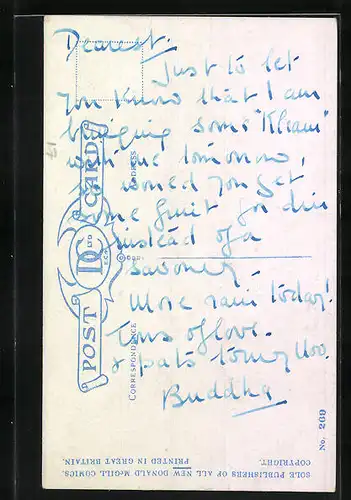 Dearest.
Just to let
you know that I am
bringing some "Kleam"
with me tomorrow,
so would you get
some fruit for din
instead of a
savoury.
More rain today!
Tons of love.
& pats to my
Buddha
POST CARD
DC LTD
E.C.
ADDRESS
CORRESPONDENCE
No. 269
SOLE PUBLISHERS OF ALL NEW DONALD McGILL COMICS.
COPYRIGHT. PRINTED IN GREAT BRITAIN.